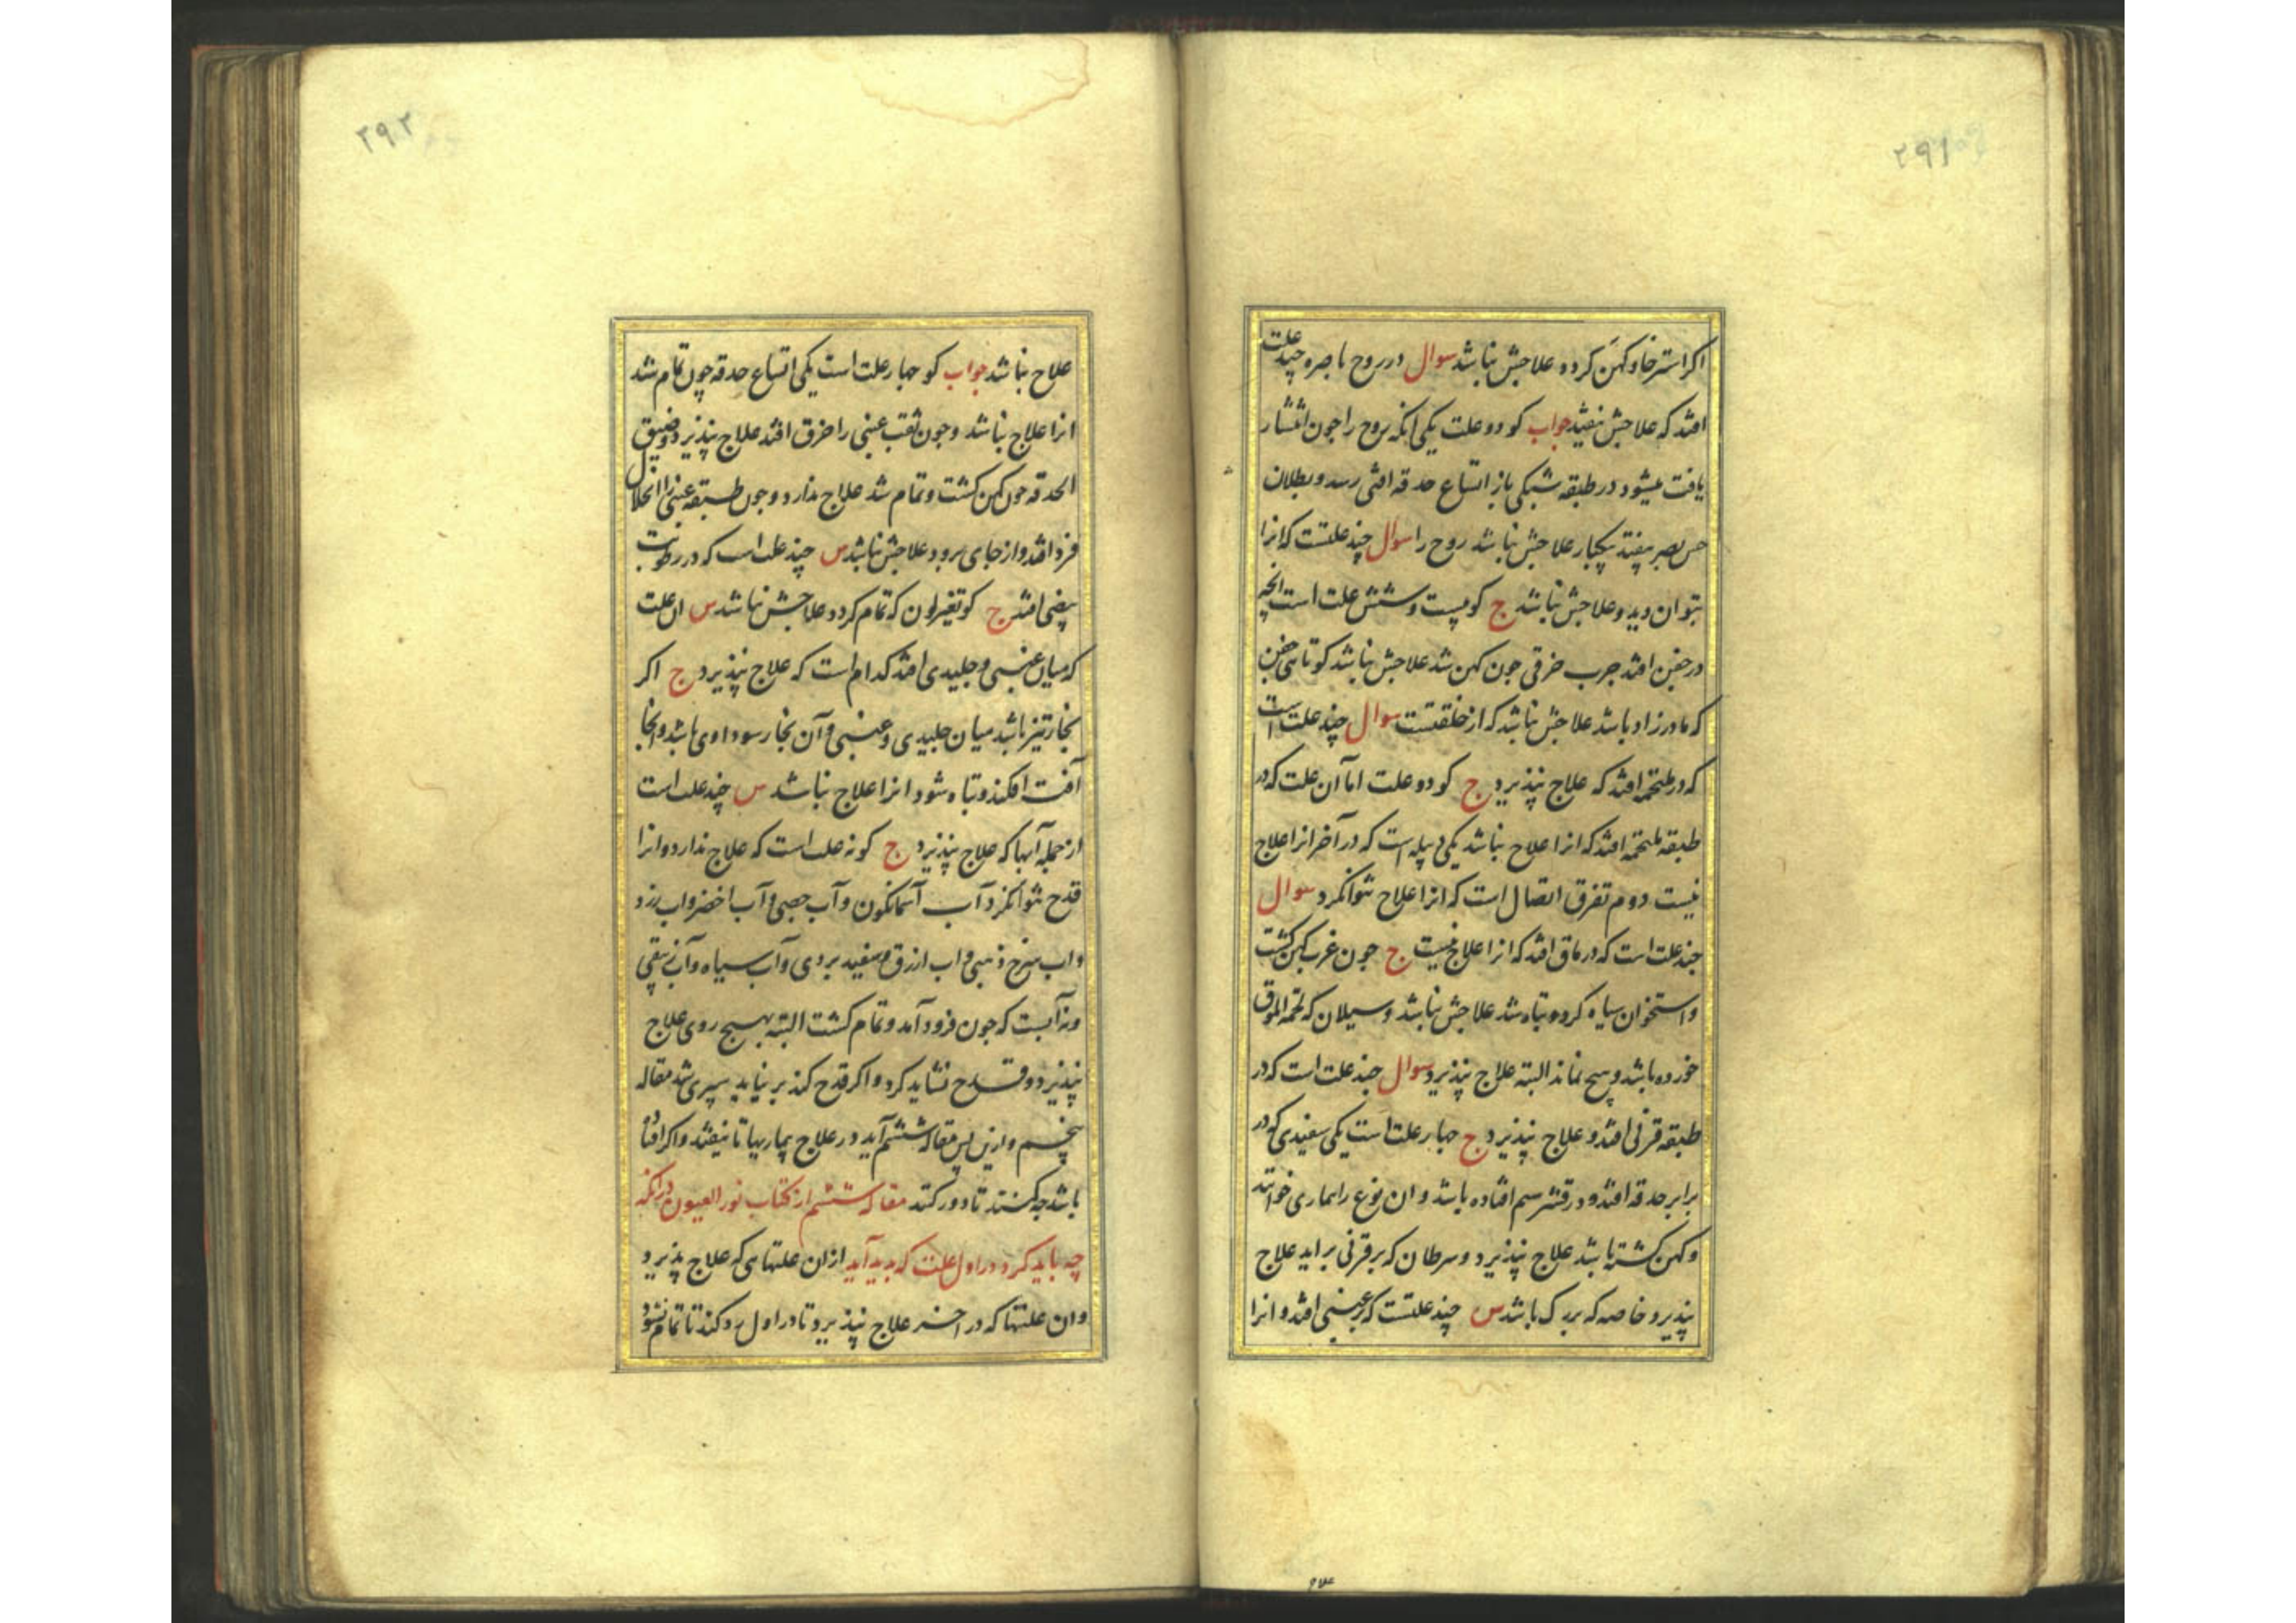 ۲۹۱
اکر استرخا و کهن کردد علاجش نباشد سوال در روح باصره چند علت
افتد که علاجش نیفتد جواب کو دو علت یکی انکه روح را جون انتشار
یافت میشود در طبقه شبکی باز اتساع حدقه افتی رسد و بطلان
حس بصر بیفتد یکبار علاجش نباشد روح را سوال چند علتست که انرا
بتوان دید و علاجش نباشد ج کو بیست و شش علت است انچه
در جفن افتد جرب خرقی جون کهن شد علاجش نباشد کوتاهی جفن
که مادرزاد باشد علاجش نباشد که از خلقتست سوال چند علت است
که در ملتحمه افتد که علاج نپذیرد ج کو دو علت اما آن علت که در
طبقه ملتحمه افتد که انرا علاج نباشد یکی دبیله است که در آخر انرا علاج
نیست دوم تفرق اتصال است که انرا علاج نتوانکرد سوال
جند علت است که در ماق افتد که انرا علاج نیست ج جون غرب کهن کشت
و استخوان سیاه کرد و تباه شد علاجش نباشد و سیلان که لحمة الموق
خورده باشد و هیج نماند البته علاج نپذیرد سوال جند علت است که در
طبقه قرنی افتد و علاج نپذیرد ج جهار علت است یکی سفیدی که در
برابر حدقه افتد و در قشر سیم افتاده باشد و ان نوع را بیماری خوانند
و کهن کشته باشد علاج نپذیرد و سرطان که بر قرنی براید علاج
نپذیرد خاصه که بزرک باشد س چند علتست که بر عنبی افتد و انرا
علاج
۲۹۲
علاج نباشد جواب کو جهار علت است یکی اتساع حدقه چون تمام شد
انرا علاج نباشد و جون ثقب عنبی را خرق افتد علاج نپذیرد و ضیق
الحدقه جون کهن کشت و تمام شد علاج ندارد و جون طبقه عنبی را انخلال
فرد افتد و از جای برود علاجش نباشد س چند علت است که در رطوبت
بیضی افتد ج کو تغیر لون که تمام کردد علاجش نباشد س ان علت
که میان عنبی و جلیدی افتد کدام است که علاج نپذیرد ج اکر
بخار تیز باشد میان جلیدی و عنبی و آن بخار سوداوی باشد و انجا
آفت افکند و تباه شود انرا علاج نباشد س چند علت است
از جمله آبها که علاج نپذیرد ج کو نه علت است که علاج ندارد و انرا
قدح نتوانکرد آب آسمانکون و آب جصی و آب اخضر و اب زرد
و اب سرخ ذهبی و اب ازرق و سفید بردی و آب سیاه و آب زیبقی
و نه آبست که جون فرود آمد و تمام کشت البته بهیج روی علاج
نپذیرد و قدح نشاید کرد و اکر قدح کند بر نیاید سپری شد مقاله
پنجم و ازین پس مقاله ششم آید در علاج بیماریها تا نیفتد و اکر افتاده
باشد جه کنند تا دور کند مقاله ششم از کتاب نور العیون در انکه
چه باید کرد در اول علت که بدید آید از ان علتهایی که علاج پذیرد
و ان علتها که در اخر علاج نپذیرد تا در اول رد کند تا تمام نشود